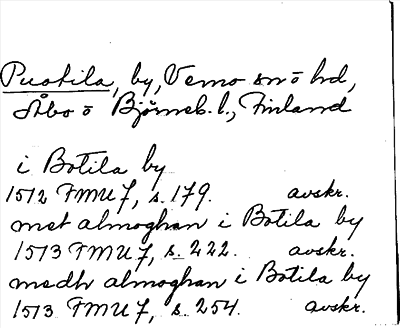 Puotila, by, Vemo sn o hd,
Åbo o Björneb. l., Finland
i Botila by
1512 FMU 7, s. 179. avskr.
met almoghan i Botila by
1513 FMU 7, s. 222. avskr.
medh almoghan i Botila by
1513 FMU 7, s. 254. avskr.